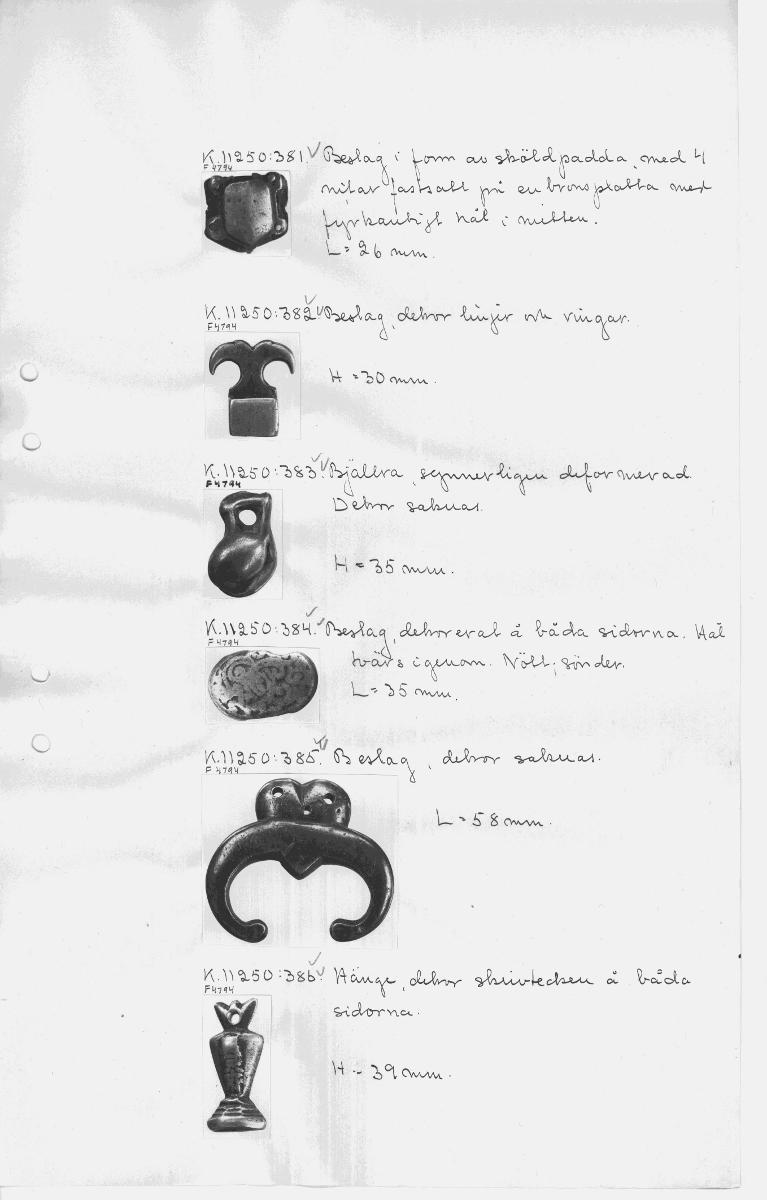 K.11250:381. Beslag i form av sköldpadda, med 4
F 4794
nitar fastsatt på en bronsplatta med
fyrkantigt hål i mitten.
L = 26 mm.
K.11250:382. Beslag, dekor linjer och ringar.
F 4794
H = 30 mm.
K.11250:383. Bjällra, synnerligen deformerad.
F 4794
Dekor saknas.
H = 35 mm.
K.11250:384. Beslag, dekorerat å båda sidorna. Hål
F 4794
tvärs igenom. Nött, sönder.
L = 35 mm.
K.11250:385. Beslag, dekor saknas.
F 4794
L = 58 mm.
K.11250:386. Hänge, dekor skrivtecken å båda
F 4794
sidorna.
H = 39 mm.